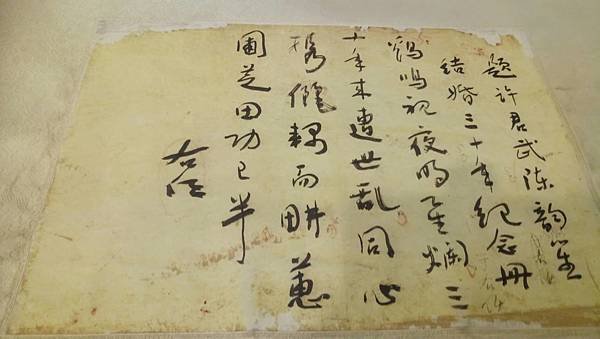 題許君武陳韵
結婚三十年紀念冊
鷄鳴視夜明星爛三
十年來遭世亂同心
携儷耦而畊蕙
圃芝田功已半
右任